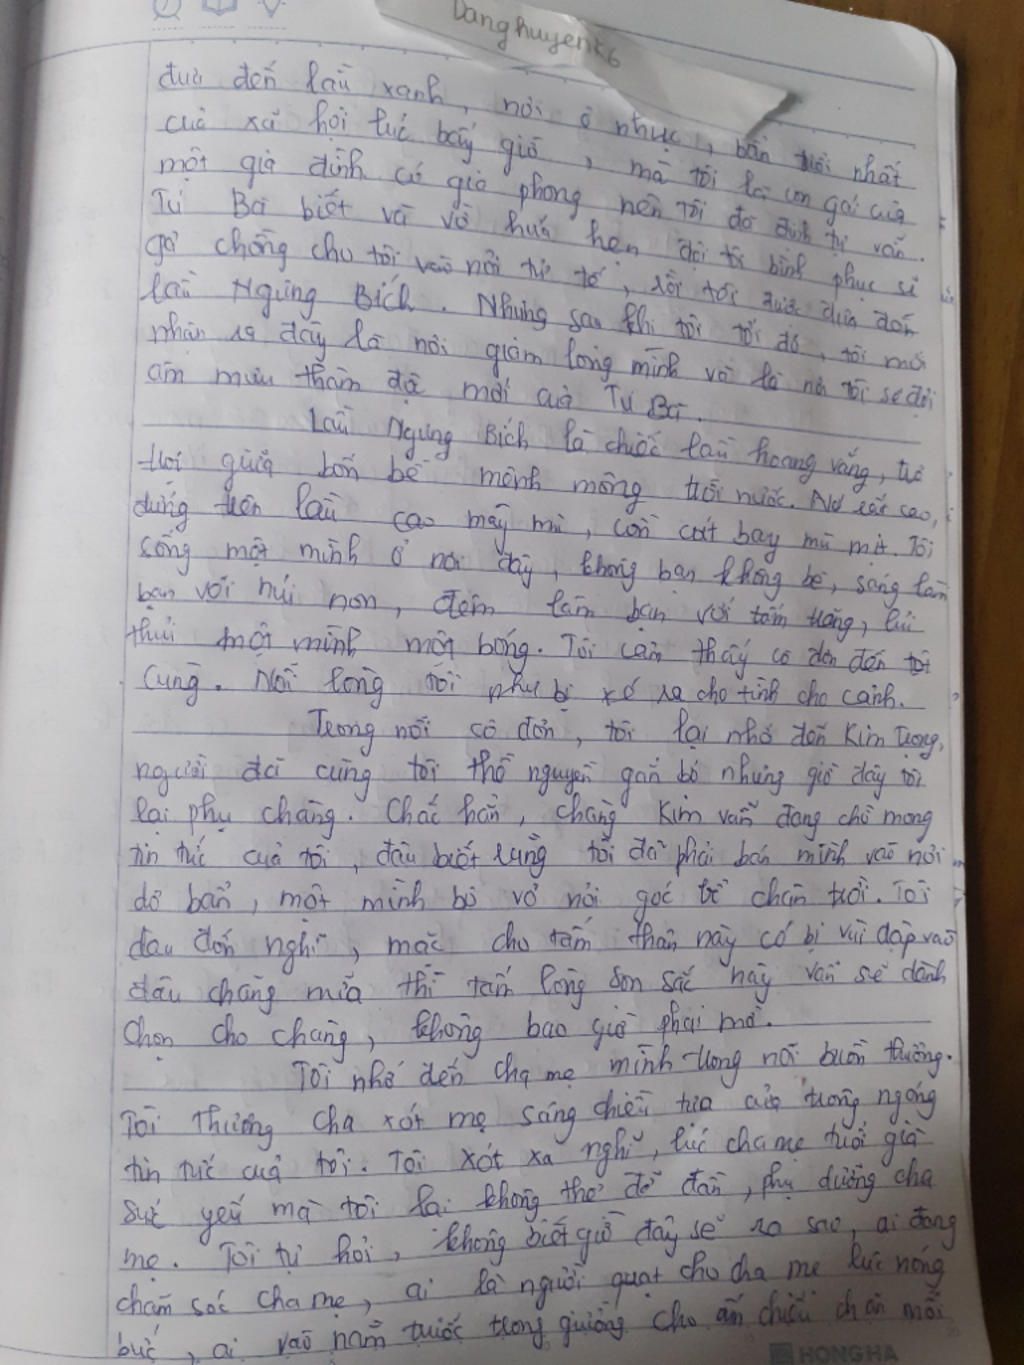 Danghuyenk6
đưa đến lầu xanh, nơi ô nhục, bẩn thỉu nhất
của xã hội lúc bấy giờ, mà tôi là con gái của
một gia đình có gia phong nên tôi đã định tự vẫn.
Tú Bà biết và vờ hứa hẹn đợi tôi bình phục sẽ
gả chồng cho tôi vào nơi tử tế, rồi tôi được đưa đến
lầu Ngưng Bích. Nhưng sau khi tôi tới đó, tôi mới
nhận ra đây là nơi giam lỏng mình và là nơi tôi sẽ đợi
âm mưu thâm độc mới của Tú Bà.
Lầu Ngưng Bích là chiếc lầu hoang vắng, trơ
trọi giữa bốn bề mênh mông trời nước. Nó rất cao,
đứng trên lầu cao mây mù, cồn cát bay mù mịt. Tôi
sống một mình ở nơi đây, không bạn không bè, sáng làm
bạn với núi non, đêm làm bạn với tấm trăng, lủi
thủi một mình một bóng. Tôi cảm thấy cô đơn đến tột
cùng. Nỗi lòng tôi như bị xé ra cho tình cho cảnh.
Trong nỗi cô đơn, tôi lại nhớ đến Kim Trọng,
người đã cùng tôi thề nguyền gắn bó nhưng giờ đây tôi
lại phụ chàng. Chắc hẳn, chàng Kim vẫn đang chờ mong
tin tức của tôi, đâu biết rằng tôi đã phải bán mình vào nơi
dơ bẩn, một mình bơ vơ nơi góc bể chân trời. Tôi
đau đớn nghĩ, mặc cho tấm thân này có bị vùi dập vào
đâu chăng nữa thì tấm lòng son sắc này vẫn sẽ dành
chọn cho chàng, không bao giờ phai mờ.
Tôi nhớ đến cha mẹ mình trong nỗi buồn thương.
Tôi thương cha xót mẹ sáng chiều tựa cửa trong ngóng
tin tức của tôi. Tôi xót xa nghĩ, lúc cha mẹ tuổi già
sức yếu mà tôi lại không thể đỡ đần, phụ dưỡng cha
mẹ. Tôi tự hỏi, không biết giờ đây sẽ ra sao, ai đang
chăm sóc cha mẹ, ai là người quạt cho cha mẹ lúc nóng
bức, ai vào nằm trước trong giường cho ấm chiếu chăn mỗi
HONG HA